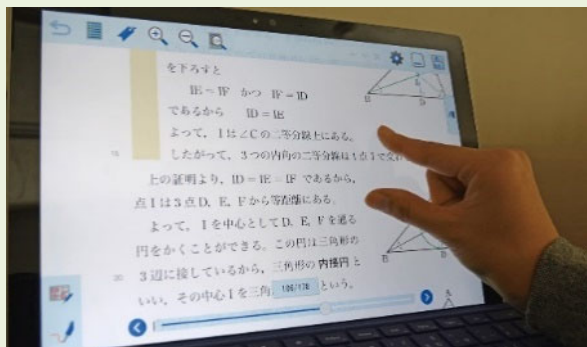 を下ろすと
IE=IF かつ IF=ID
であるから ID=IE
よって，Iは∠Cの二等分線上にある。
したがって，3つの内角の二等分線は1点Iで交わ
上の証明より，ID=IE=IF であるから，
点Iは3点D，E，Fから等距離にある。
よって，Iを中心としてD，E，Fを通る
円をかくことができる。この円は三角形の
20
3辺に接しているから，三角形の内接円と
いい，その中心Iを三角
という。
B
D
B
D
A